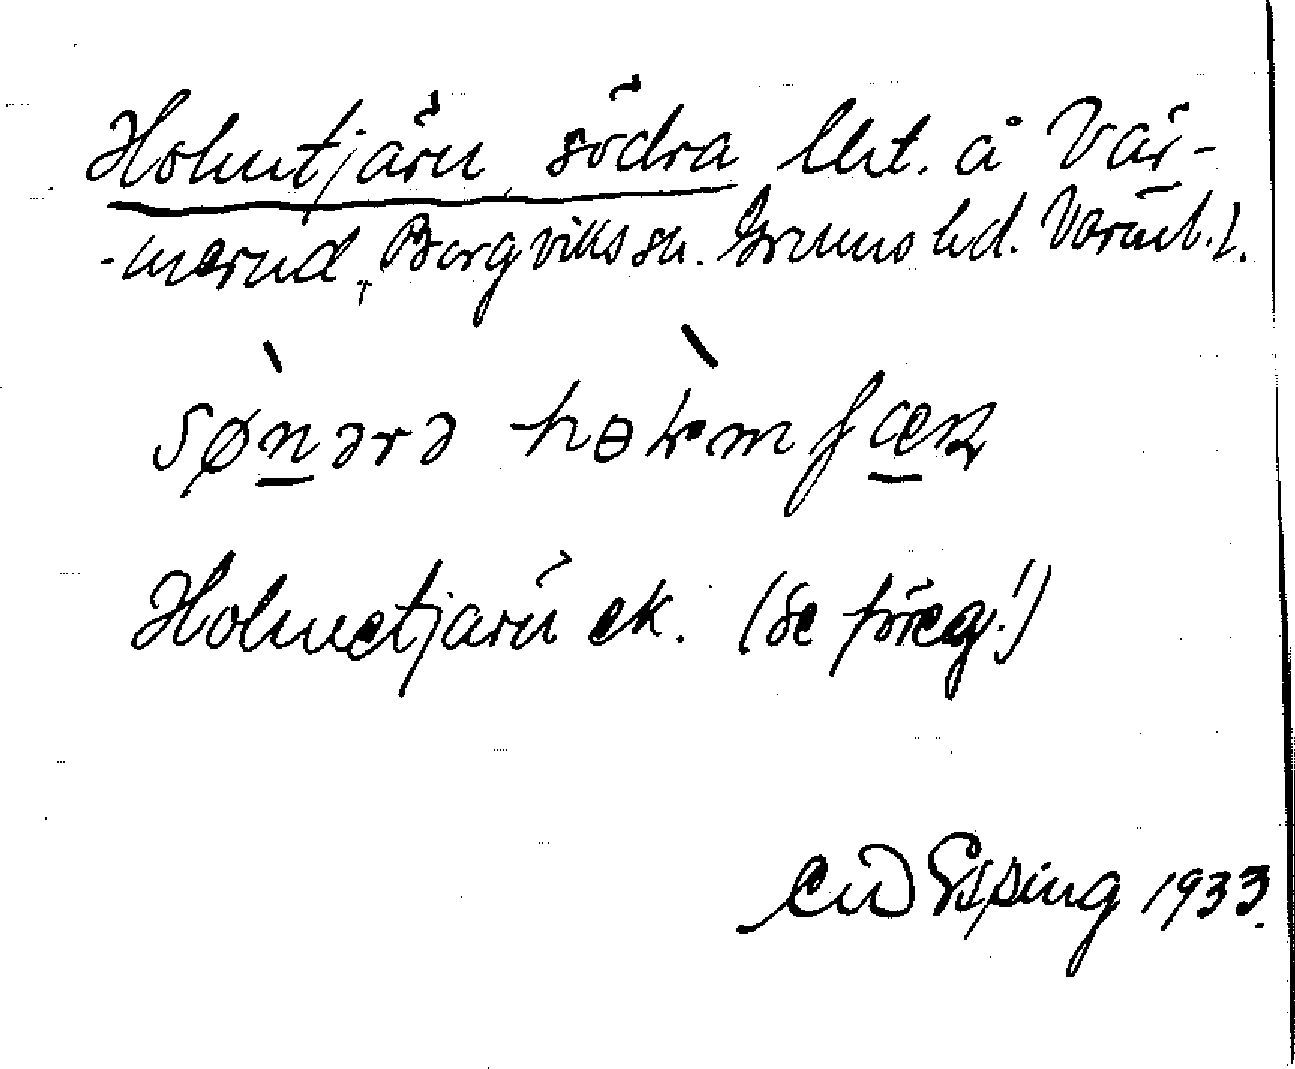 Holmtjärn, södra lht. å Vär-
-merud, Borgviks sn. Grums hd. Värml. l.
sø̀nərə hɵ̀ɽmfæɳ
Holmetjärn ek. (se föreg.!)
Esping 1933.